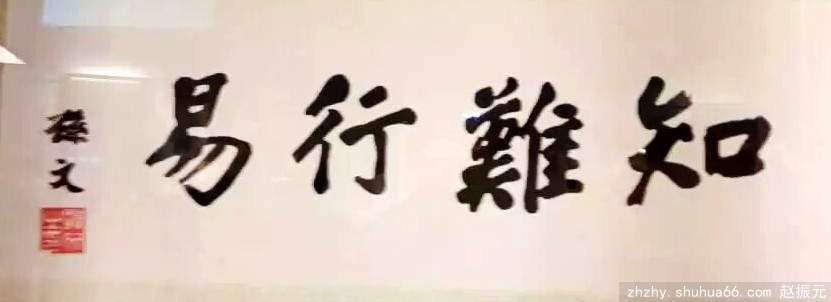 知難行易
孫文
zhzhy.shuhua66.com 赵振元